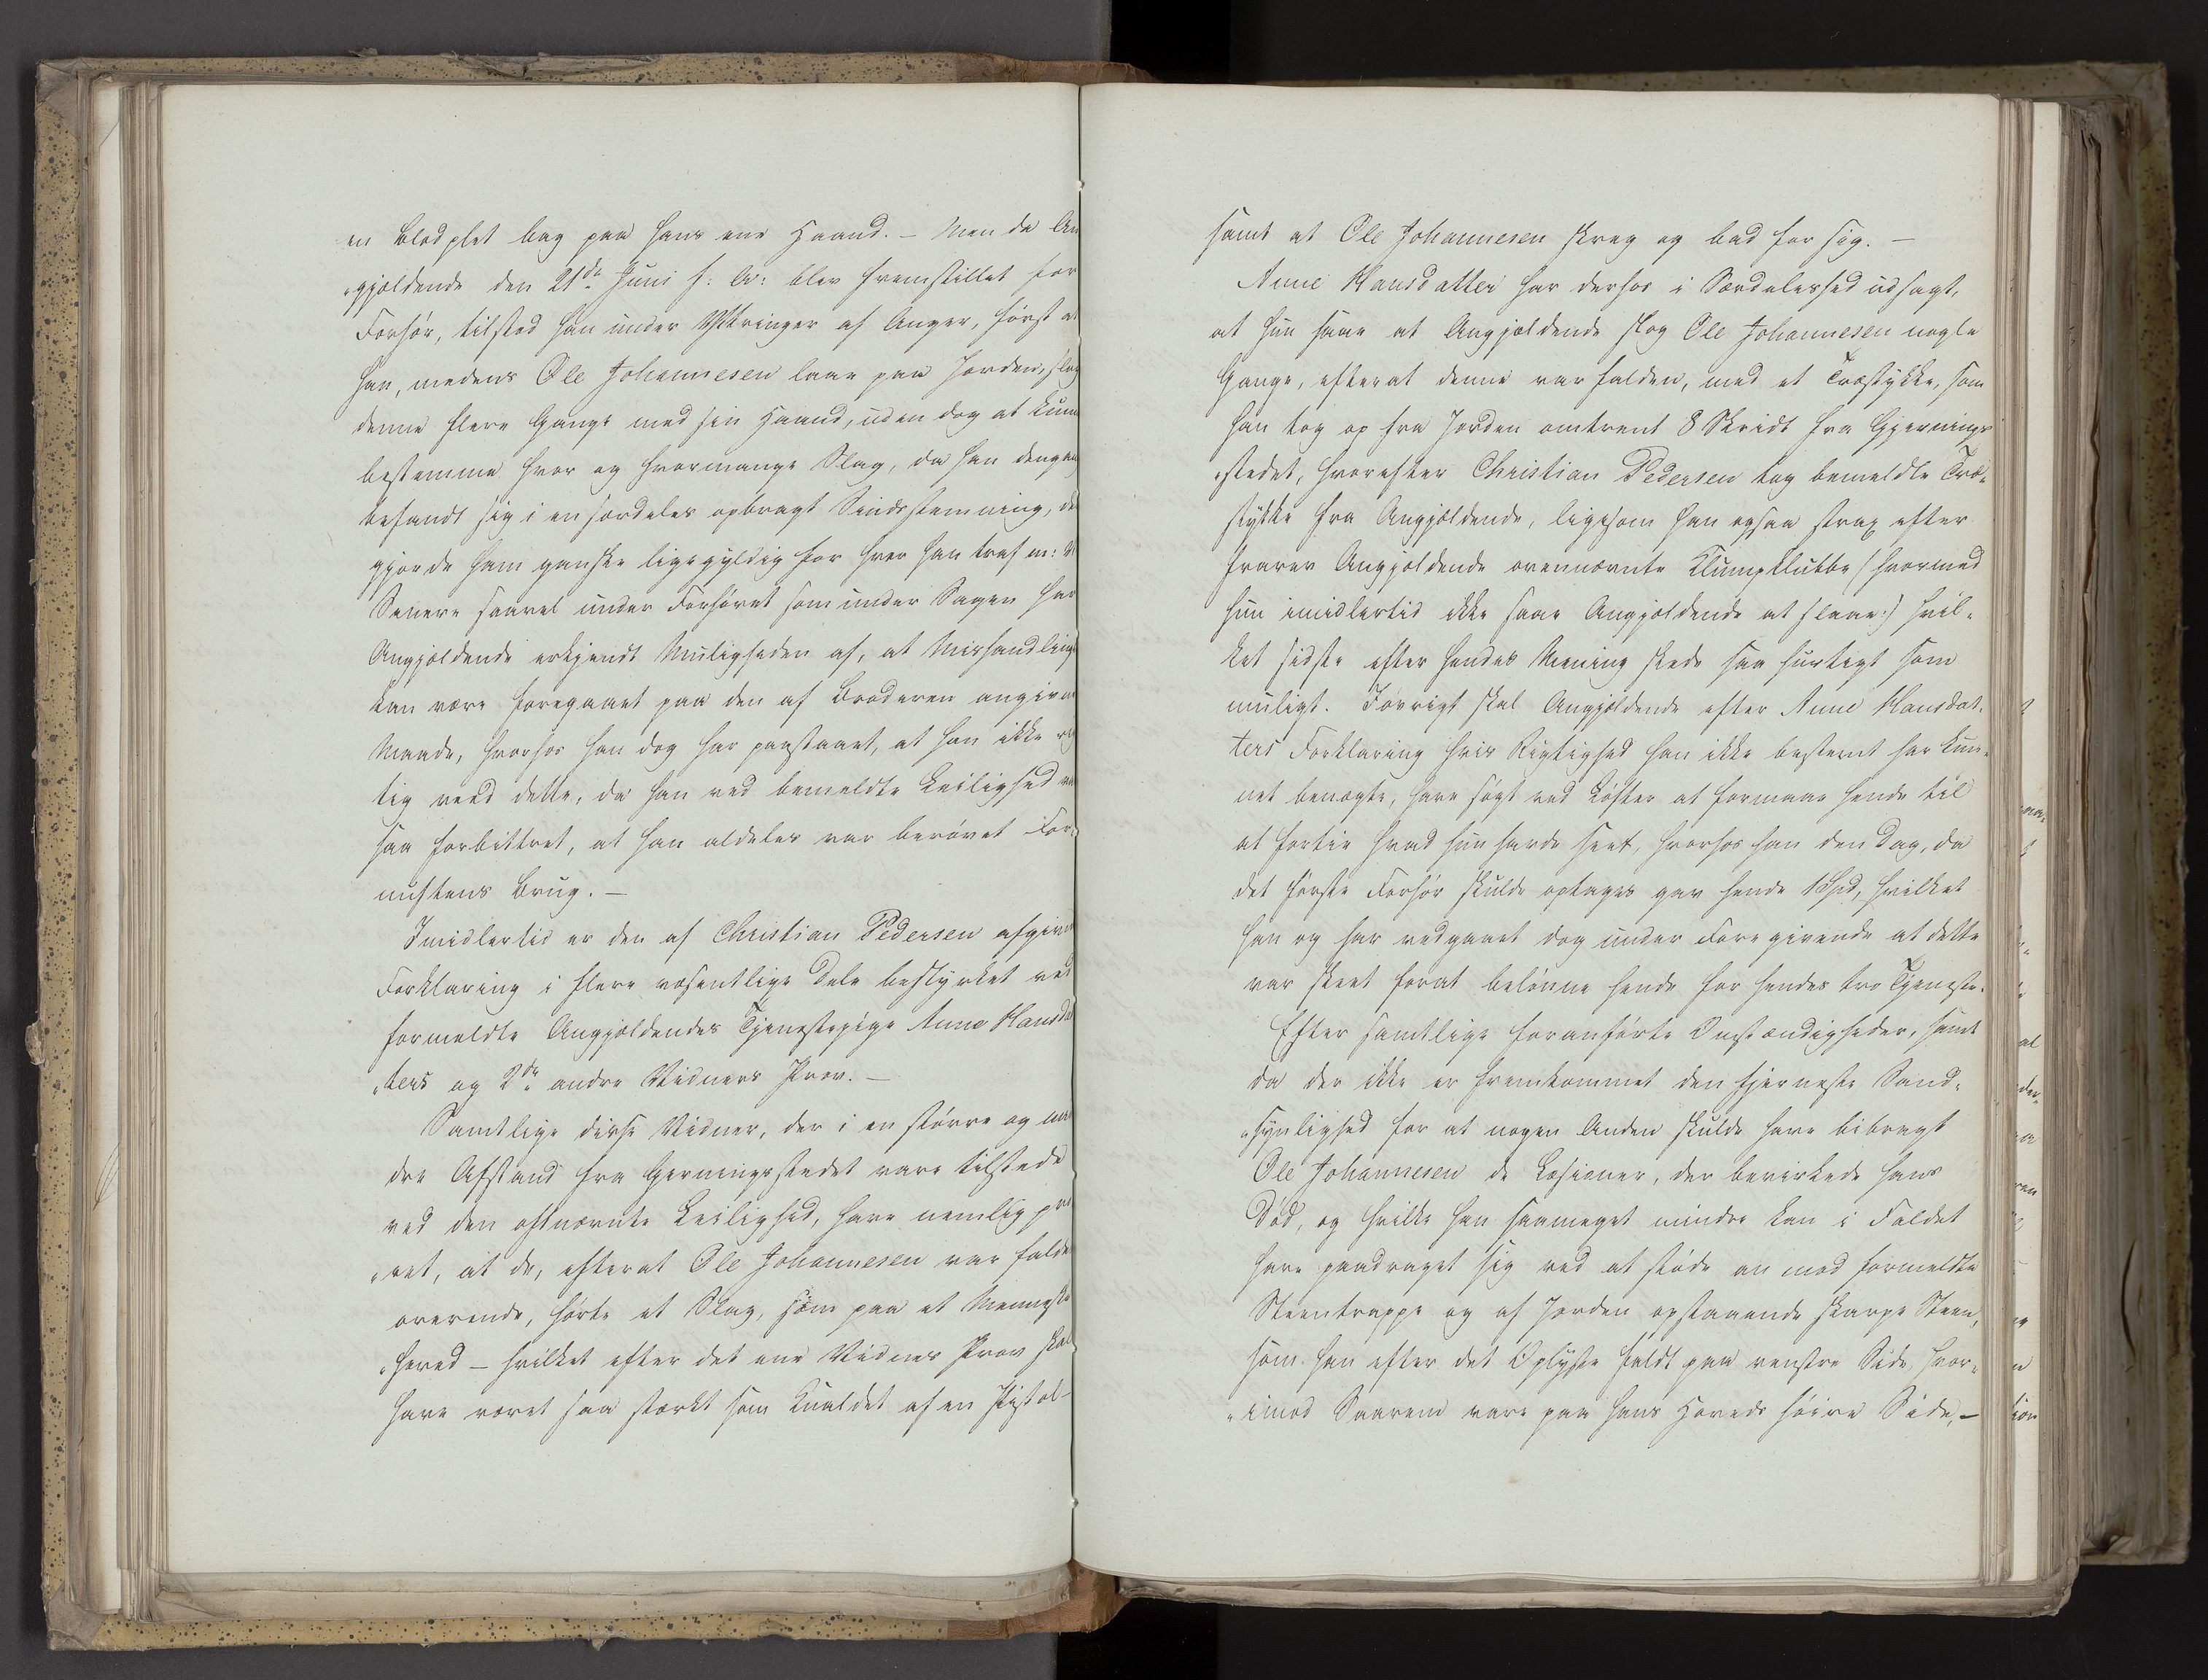 en Blodplet bag paa hans ene Haand. – Men da An
gjældende den 21de Juni f: A: blev fremstillet for
Forhør, tilstod han under Yttringer af Anger, først at
han, medens Ole Johannesen laae paa Jorden, slog
denne flere Gange med sin Haand, uden dog at kunne
bestemme hvor og hvormange Slag, da han dengang
befandt sig i en særdeles opbragt Sindsstemning, der
gjorde ham ganske ligegyldig for hvor han traf m: V:
Senere saavel under Forhøret som under Sagen har
Angjældende erkjendt Muligheden af, at Mishandlingen
kan være foregaaet paa den af Broderen angivne
Maade, hvorhos han dog har paastaaet, at han ikke rig
tig veed dette, da han ved bemeldte Leilighed var
saa forbittret, at han aldeles var berøvet For-
nuftens Brug. –
Imidlertid er den af Christian Pedersen afgivne
Forklaring i flere væsentlige Dele bestyrket ved
formeldte Angjældendes Tjenestepige Anne Hansdat
ters og 2de andre Vidners Prov. –
Samtlige disse Vidner, der i en større og min
dre Afstand fra Gerningsstedet vare tilstede
ved den oftnævnte Leilighed, have nemlig pro
vet, at de, efterat Ole Johannesen var falden
overende, hørte et Slag, som paa et Menneske
hoved – hvilket efter det ene Vidnes Prov skal
have været saa stærkt som Knaldet af en Pistol –
samt at Ole Johannesen skreg og bad for sig. –
Anne Hansdatter har derhos i Særdeleshed udsagt,
at hun saae at Angjældende slog Ole Johannesen nogle
Gange, efterat denne var falden, med et Træstykke, som
han tog op fra Jorden omtrent 8 Skridt fra Gjernings
stedet, hvorefter Christian Pedersen tog bemeldte Træ-
stykke fra Angjældende, ligesom han ogsaa strax efter
fravev Angjældende ovennævnte Klumpklubbe (hvormed
hun imidlertid ikke saae Angjældende at slaae:) hvil-
ket sidste efter hendes Mening skede saa hurtigt som
muligt. Iøvrigt skal Angjældende efter Anne Hansdat-
ters Forklaring hvis Rigtighed han ikke bestemt har kun-
net benægte, have søgt ved Løfter at formaae hende til
at fortie hvad hun havde seet, hvorhos han den Dag, da
det første Forhør skulde optages gav hende 1 Spd, hvilket
han og har vedgaaet dog under Foregivende at dette
var skeet forat belønne hende for hendes tro Tjeneste.
Efter samtlige foranførte Omstændigheder, samt
da der ikke er fremkommet den fjerneste Sand-
synlighed for at nogen Anden skulde have bibragt
Ole Johannesen de Læsioner, der bevirkede hans
Død, og hvilke han saameget mindre kan i Faldet
have paadraget sig ved at støde an mod formeldte
Steentrappe og af Jorden opstaaende skarpe Steen,
som han efter det Oplyste faldt paa venstre Side, hvor-
imod Saarene vare paa hans Hoveds høire Side, –